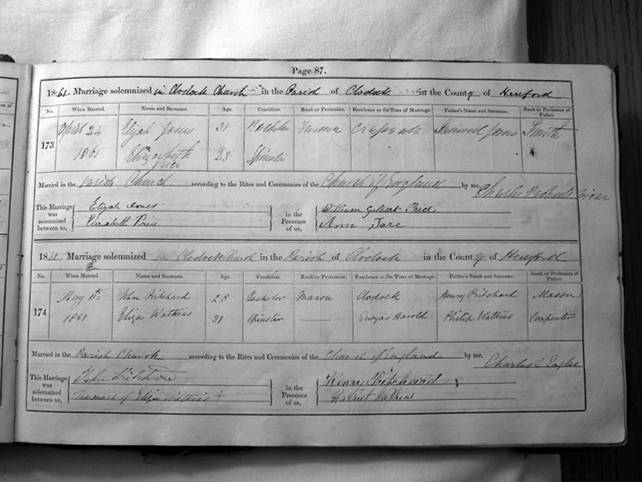 Page 87.
1861. Marriage solemnized in Clodock Church in the Parish of Clodock in the County of Hereford
No. When Married. Name and Surname. Age. Condition. Rank or Profession. Residence at the Time of Marriage. Father's Name and Surname. Rank or Profession of Father.
173 April 24 Elijah Jones 31 Bachelor Jones Smith
1861 Elizabeth Price 23 Spinster
Married in the Parish Church according to the Rites and Ceremonies of the Church of England by me, Charles
This Marriage was solemnized between us, Elijah Jones in the Presence of us, William Gilbert Price
Elizabeth Price Ann
1861. Marriage solemnized in Clodock Church in the Parish of Clodock in the County of Hereford
No. When Married. Name and Surname. Age. Condition. Rank or Profession. Residence at the Time of Marriage. Father's Name and Surname. Rank or Profession of Father.
174 May 11th John Pritchard 28 Bachelor Mason Clodock Henry Pritchard Mason
1861 Eliza Watkins 31 Spinster Ewyas Harold Philip Watkins Carpenter
Married in the Parish Church according to the Rites and Ceremonies of the Church of England by me, Charles S Eagles
This Marriage was solemnized between us, John Pritchard in the Presence of us, Pritchard
The mark of Eliza Watkins + Harriet Watkins